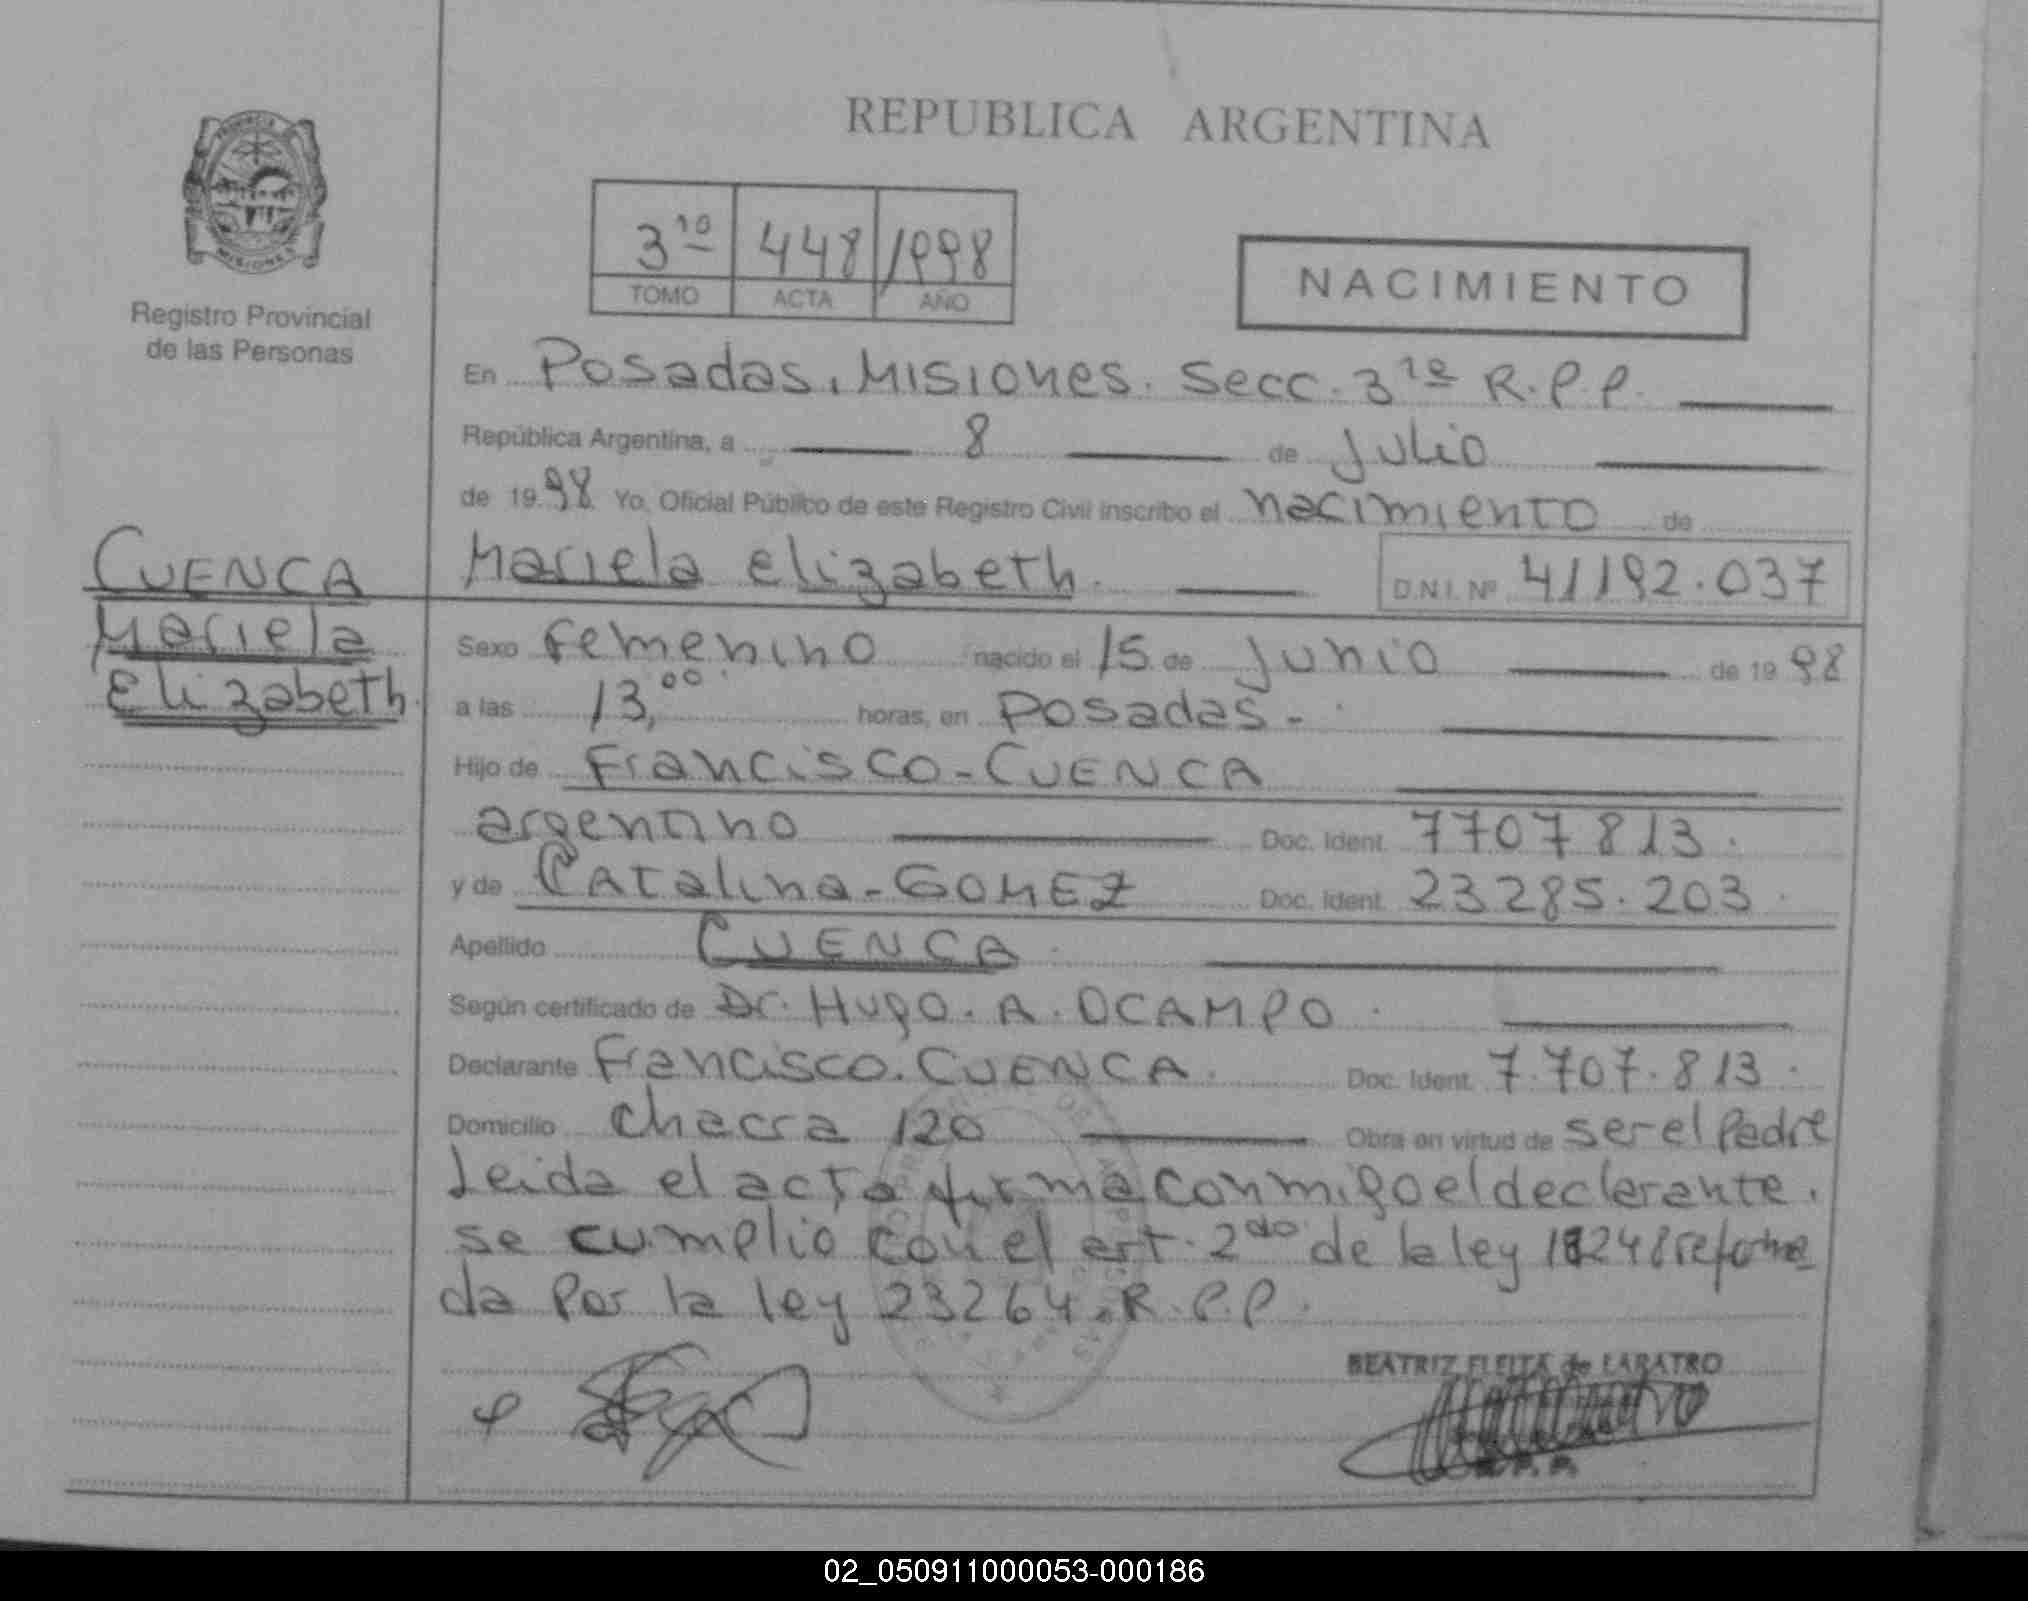 REPUBLICA ARGENTINA
PROVINCIA DE MISIONES
Registro Provincial
de las Personas
3ra 448 1998
TOMO ACTA AÑO
NACIMIENTO
En Posadas, Misiones. Secc. 3ra R.P.P.
República Argentina, a 8 de Julio
de 1998 Yo, Oficial Público de este Registro Civil inscribo el nacimiento de
Mariela Elizabeth. D.N.I. Nº 41192.037
CUENCA
Mariela
Elizabeth.
Sexo Femenino nacido el 15 de Junio de 1998
a las 13,00 horas, en Posadas.
Hijo de Francisco - CUENCA
argentino Doc. Ident. 7707813.
y de Catalina - GOMEZ Doc. Ident. 23285.203
Apellido CUENCA
Según certificado de Dr. Hugo. A. OCAMPO.
Declarante Francisco. CUENCA. Doc. Ident. 7.707.813.
Domicilio Chacra 120 Obra en virtud de ser el Padre
Leida el acta firma conmigo el declarante.
se cumplio con el art. 2do de la ley 18248 reforma
da por la ley 23264. R.P.P.
BEATRIZ FLEITA de LABATRO
02_050911000053-000186